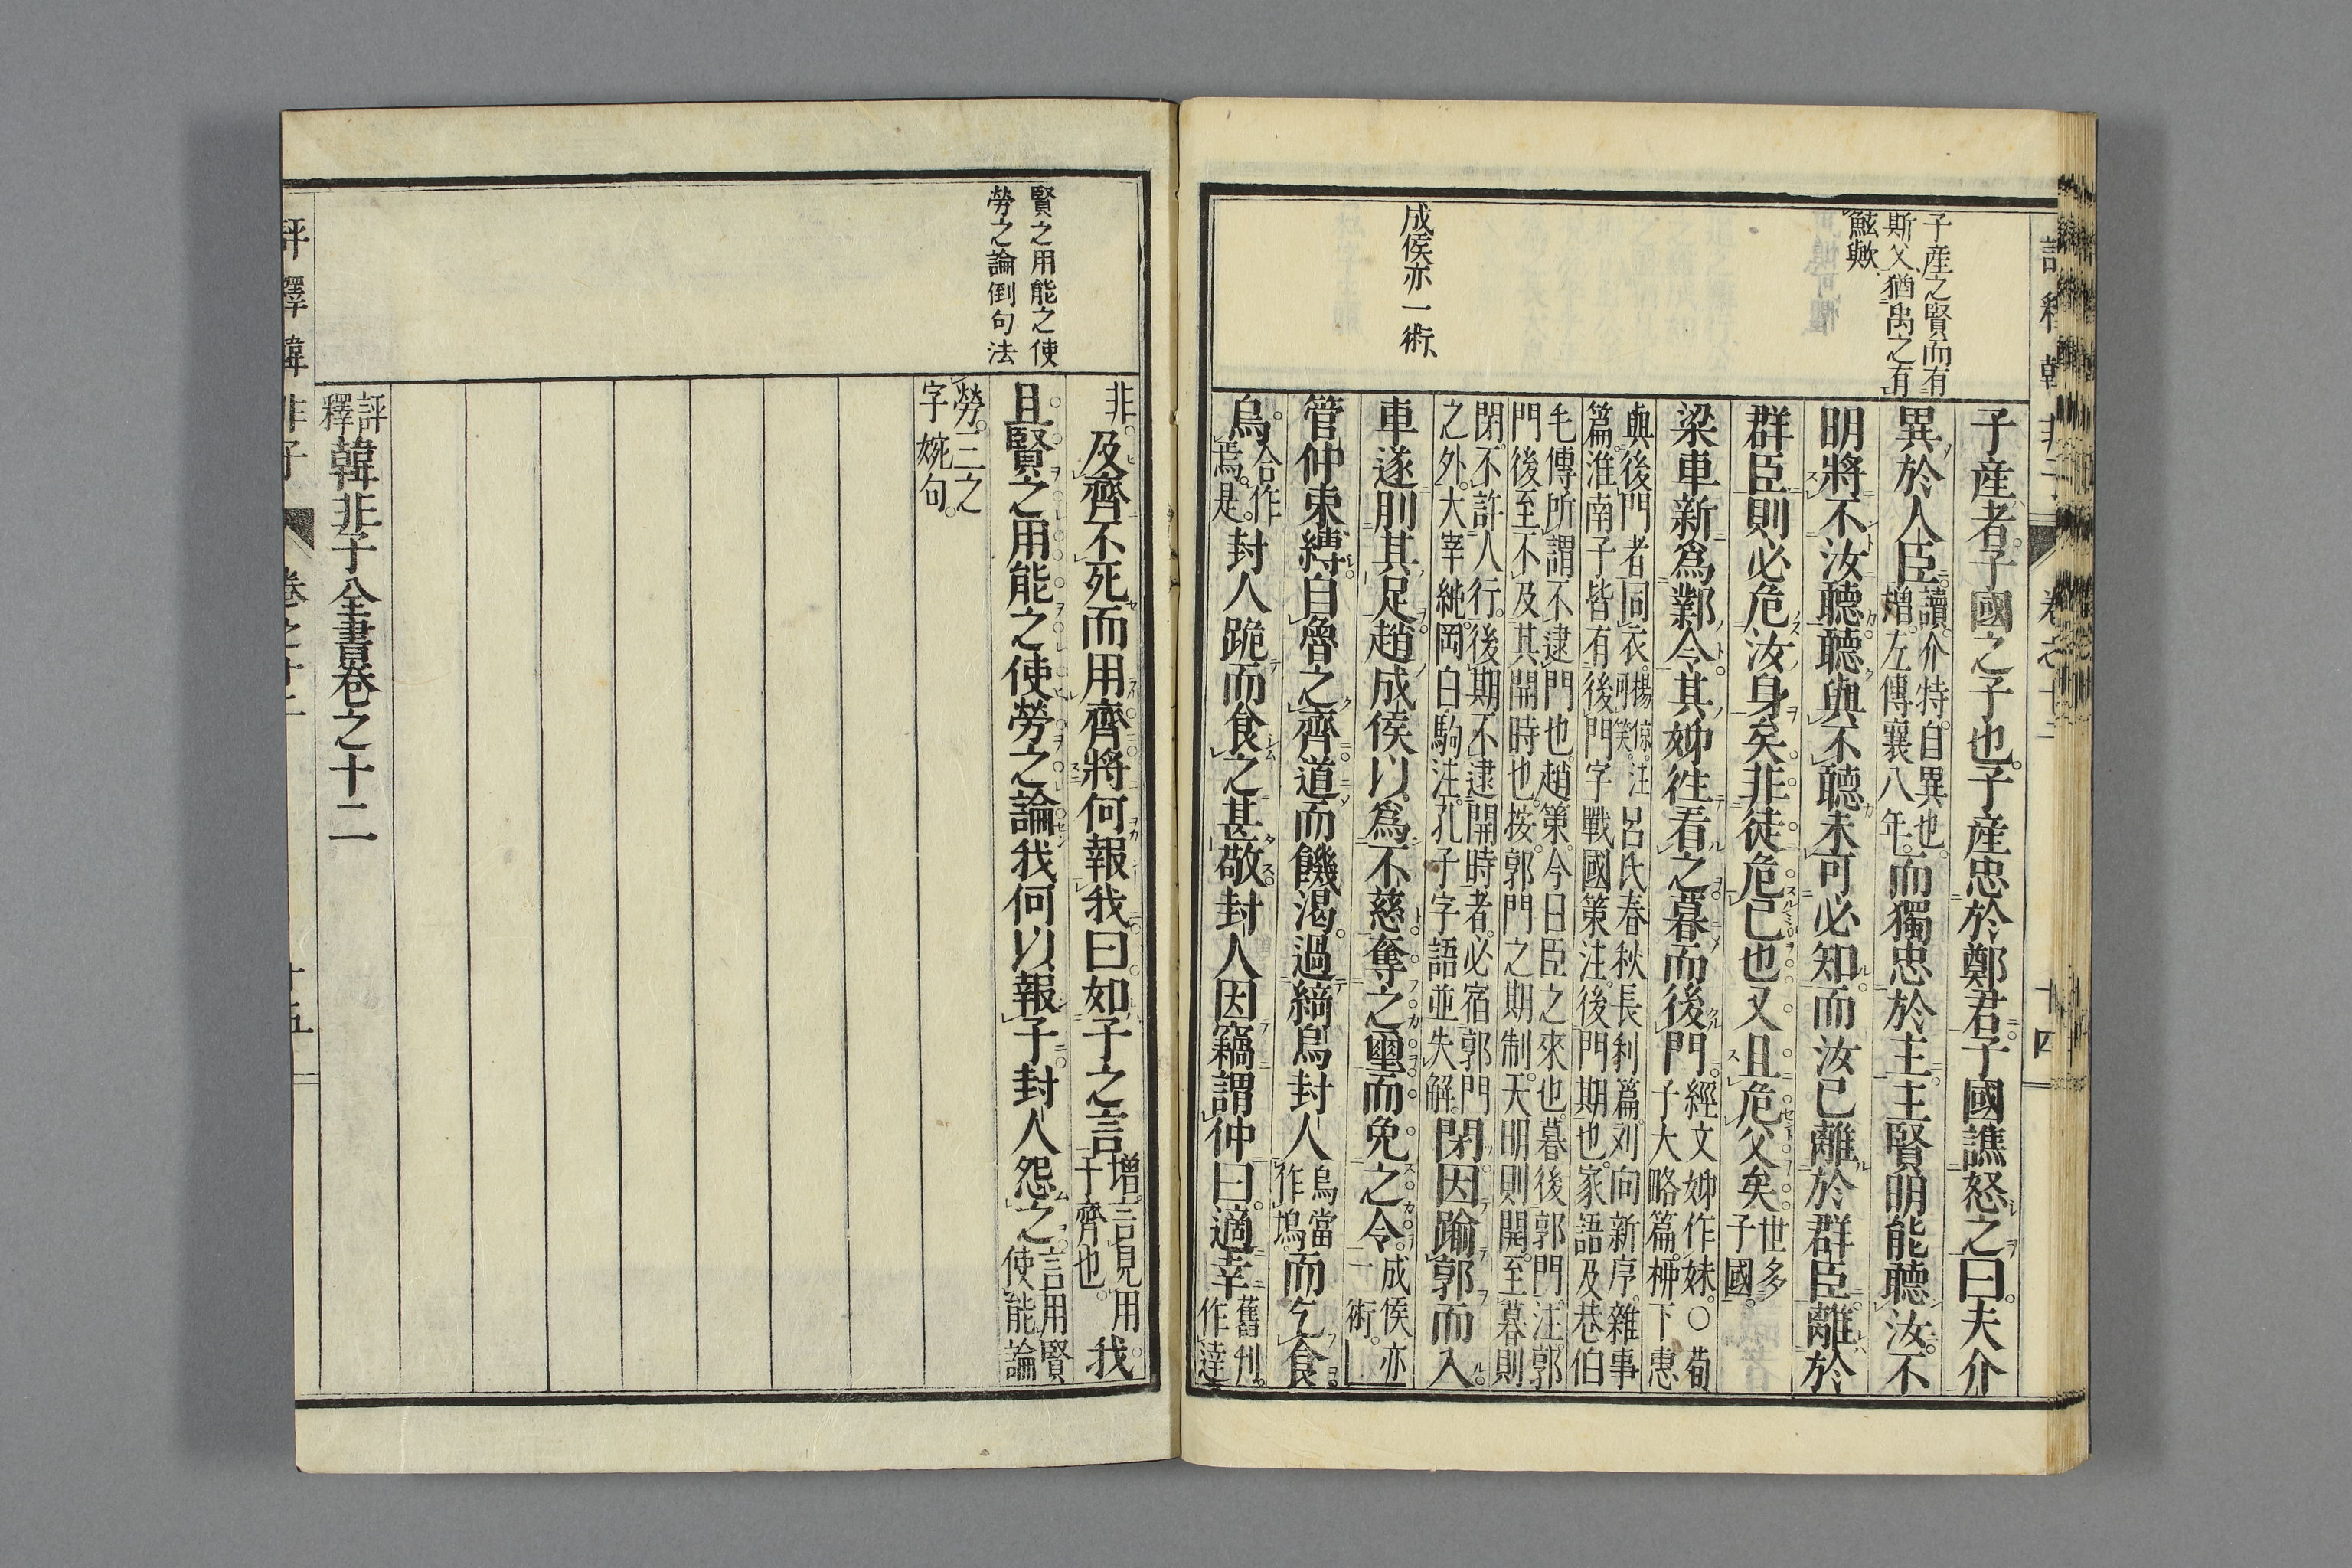 子產之賢而有
斯父猶禹之有
鯀歟
成侯亦一術
子產者子國之子也子產忠於鄭君子國譙怒之曰夫介
異於人臣讀介特自異也
增左傳襄八年而獨忠於主主賢明能聽汝不
明將不汝聽聽與不聽未可必知而汝已離於群臣離於
群臣則必危汝身矣非徒危已也又且危父矣世多
子國
梁車新爲鄴令其姊往看之暮而後門經文姊作妹○荀
子大略篇柳下惠
與後門者同衣楊倞注呂氏春秋長利篇刘向新序雜事
篇淮南子皆有後門字戰國策注後門期也家語及巷伯
毛傳所謂不逮門也趙策今日臣之來也暮後郭門注郭
門後至不及其開時也按郭門之期制天明則開至暮則
閉不許人行後期不逮開時者必宿郭門
之外大宰純岡白駒注孔子字語並失解閉因踰郭而入
車遂刖其足趙成侯以爲不慈奪之璽而免之令成侯亦
一術
管仲束縛自魯之齊道而饑渴過綺烏封人烏當
作塢而乞食
烏合作
焉是封人跪而食之甚敬封人因竊謂仲曰適幸舊刊
作達
賢之用能之使
勞之論倒句法
非及齊不死而用齊將何報我曰如子之言增言見用
于齊也我
且賢之用能之使勞之論我何以報子封人怨之言用賢
使能論
勞三之
字婉句
評釋韓非子全書卷之十二
評釋韓非子 卷之十二 十五